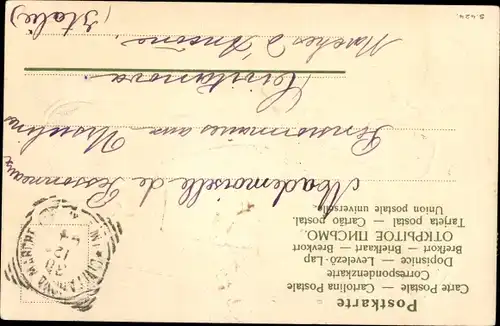 Postkarte
Carte Postale — Cartolina Postale
Correspondenzkarte
Dopisnice — Levelező-Lap
Brefkort — Briefkaart — Brevkort
ОТКРЫТОЕ ПИСЬМО.
Tarjeta postal — Cartão postal.
Union postale universelle.
Mademoiselle de Pessonneaux
Pensionnaire aux Ursulines
Civitanova
Marches d'Ancône.
(Italie)
CIVITANOVA MARCHE
S. 424.